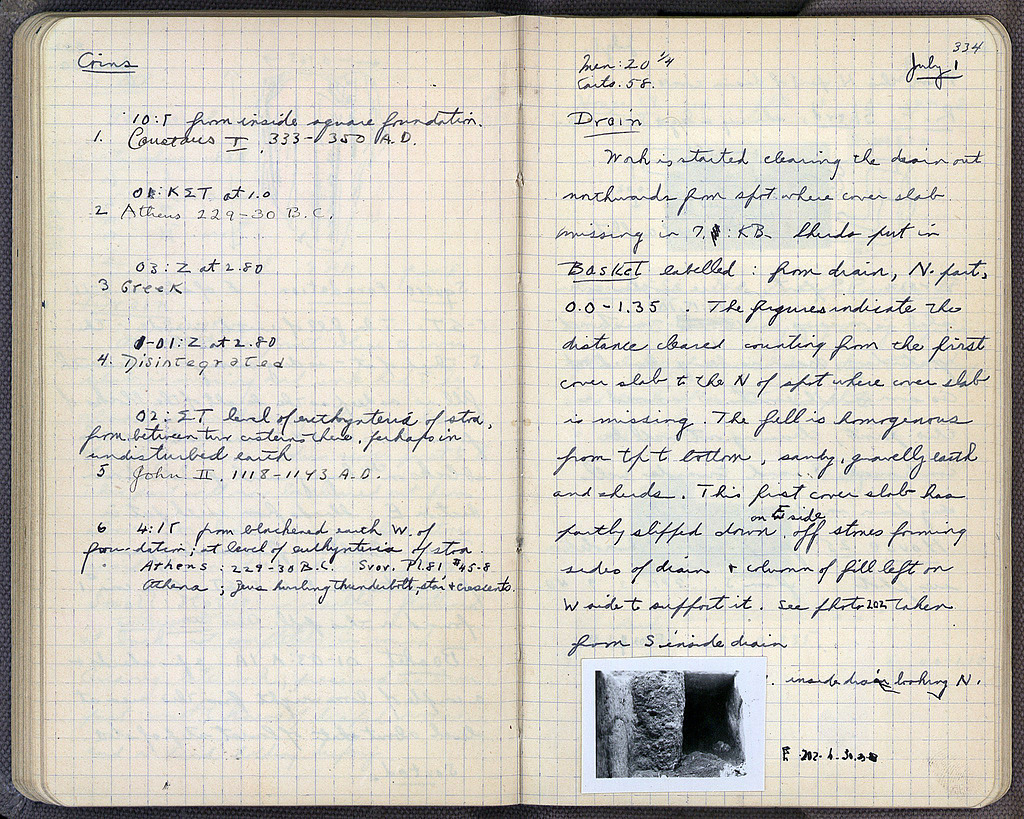 Coins
10:Γ from inside square foundation.
1. Constans I, 333-350 A.D.
01:ΚΣΤ at 1.0
2 Athens 229-30 B.C.
03:Z at 2.80
3 Greek
0-01:Z at 2.80
4. Disintegrated
02:ΣΤ level of euthynteria of stoa,
from between two cisterns there, perhaps in
undisturbed earth
5 John II, 1118-1143 A.D.
6 4:ΙΓ from blackened earth W. of
foundation; at level of euthynteria of stoa.
Athens: 229-30 B.C. Svor. Pl.81 #45-8
Athena; Zeus hurling thunderbolt, star & crescents.
334
July 1
Men: 20 1/4
Carts. 58.
Drain
Work is started clearing the drain out
northwards from spot where cover slab
missing in 7 : KB. Sherds put in
Basket labelled: from drain, N. part,
0.0-1.35. The figures indicate the
distance cleared counting from the first
cover slab to the N of spot where cover slab
is missing. The fill is homogenous
from top to bottom, sandy, gravelly earth
and sherds. This first cover slab has
partly slipped down on W side off stones forming
sides of drain & column of fill left on
W side to support it. See photo 202 taken
from S inside drain
inside drain looking N.